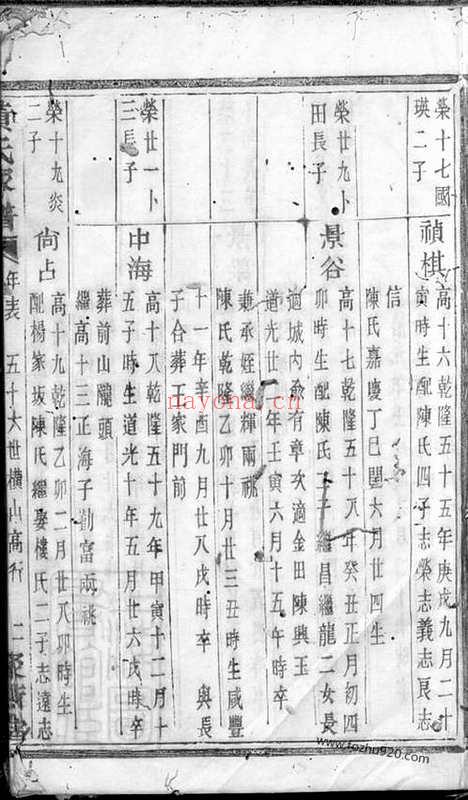 榮十七國
瑛二子
禎棋
高十六乾隆五十五年庚戌九月二十
寅時生配陳氏四子志榮志義志良志
信
陳氏嘉慶丁巳閏六月廿四生
榮廿九卜
田長子
景谷
高十七乾隆五十八年癸丑正月初四
卯時生配陳氏二子繼昌繼龍二女長
適城內俞有章次適金田陳興玉
道光廿一年壬寅六月十五午時卒
兼承姪繼輝兩祧
陳氏乾隆乙卯十月廿三丑時生咸豐
十一年辛酉九月廿八戌時卒 與長
子合葬王家門前
榮廿一卜
三長子
中海
高十八乾隆五十九年甲寅十二月十
五子時生道光十年五月廿六戌時卒
葬前山隴頭
繼高十三正海子勛富兩祧
榮十九炎
二子
尚占
高十九乾隆乙卯二月廿八卯時生
配楊家坂陳氏繼娶樓氏二子志遠志
黄氏家譜
年表
五十六世橫山高行
二
nayona.cn
www.tozhu920.com